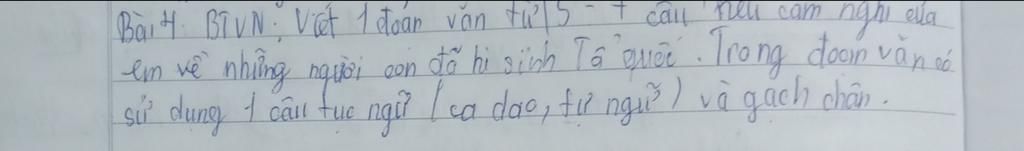 Bài 4: BTVN: Viết 1 đoán văn từ 5 - 7 câu nêu cảm nghĩ của
em về những người con đã hi sinh Tổ quốc. Trong đoạn văn có
sử dụng 1 câu tục ngữ (ca dao, từ ngữ) và gạch chân.